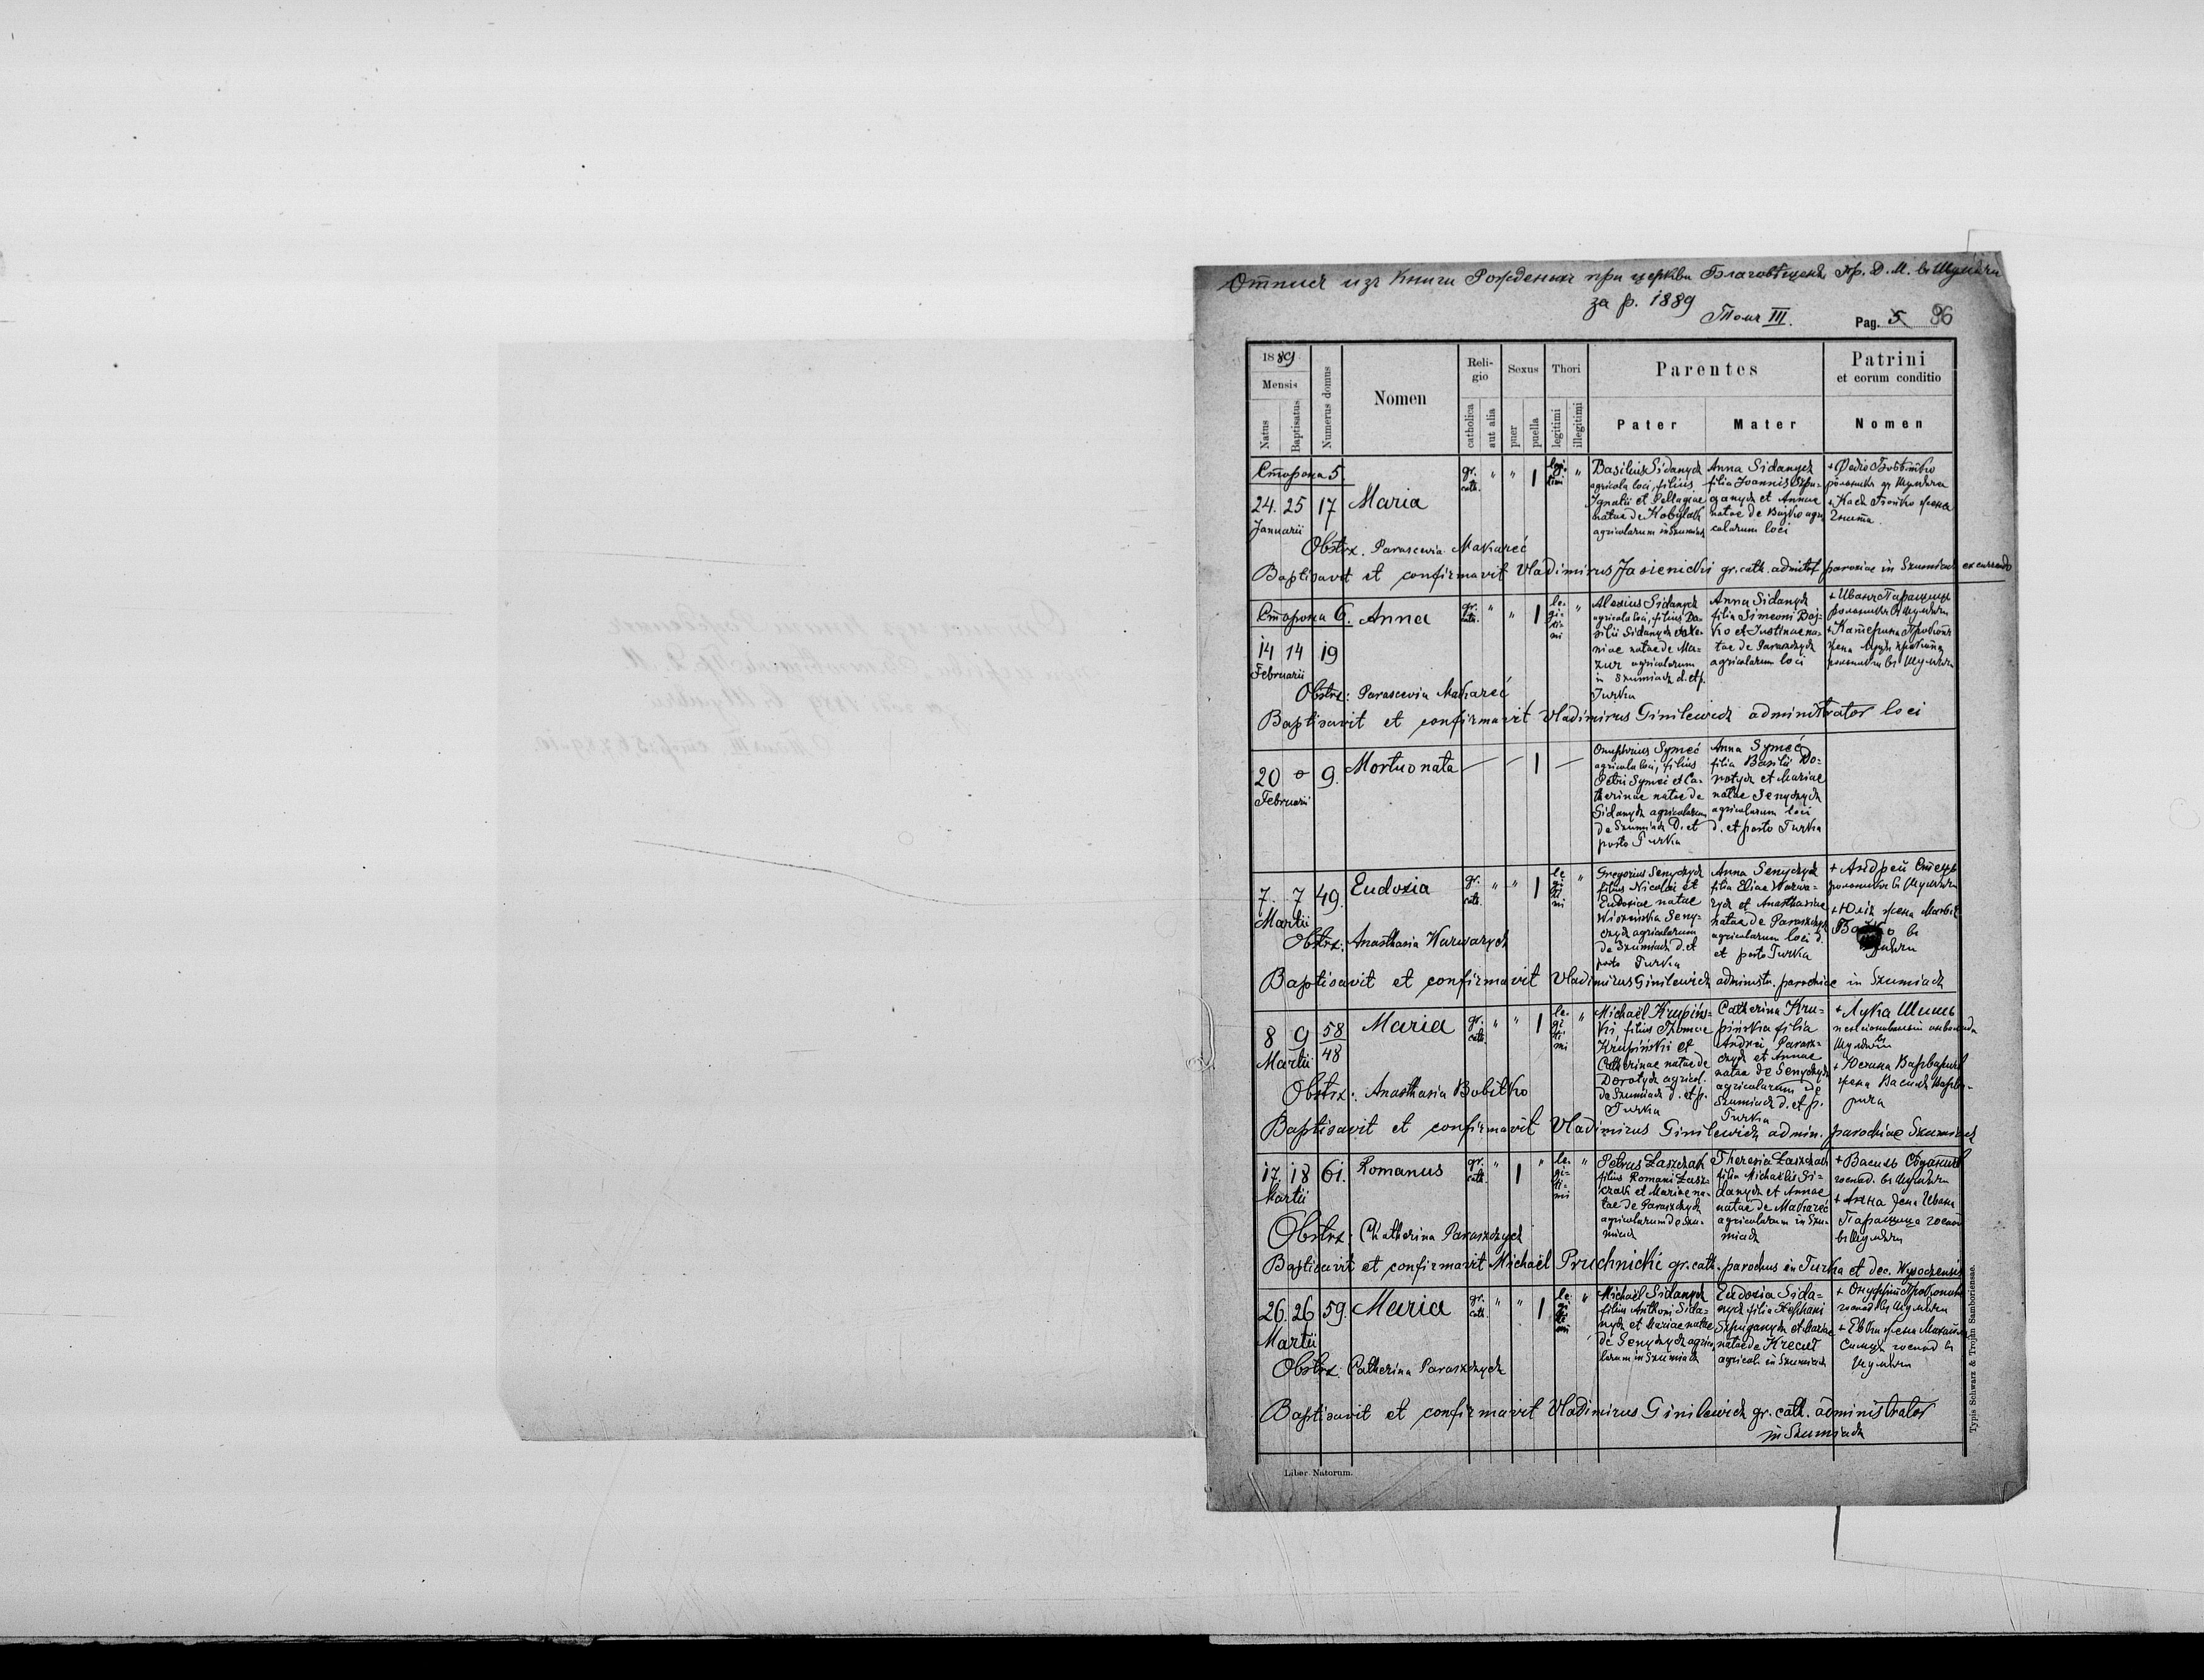 Отпись изъ Книги Рожденыхъ при церкви Благовѣщенія Пр. Д. М. въ Шумячи
за р. 1889
Томъ III.
Pag. 5 86
1889
Mensis
Natus
Baptisatus
Numerus domus
Nomen
Religio
catholica
aut alia
Sexus
puer
puella
Thori
legitimi
illegitimi
Parentes
Pater
Mater
Patrini
et eorum conditio
Nomen
Сторона 5.
24. 25 17 Maria gr. cath. " " 1 legitimi "
Januarii
Basilius Sidanych
agricola loci, filius
Ignatii et Pellagiae
natae de Kobylak
agricolarum in Szumiacz
Anna Sidanych
filia Joannis Szpu-
ganych et Annae
natae de Bojko agri
colarum loci
+ Федіо Бобитко
рольникъ зъ Шумяча
+ Кася Бойко жена
Игната
Obstx. Parascevia Makareć
Baptisavit et confirmavit Vladimirus Jasienicki gr. cath. admitor parociae in Szumiacz excurrendo
Сторона 6.
14 14 19 Anna gr. cath. " " 1 legitimi "
Februarii
Alexius Sidanych
agricola loci, filius Ba-
silii Sidanych et Xe-
niae natae de Ma-
zur agricolarum
in Szumiacz d. et p.
Turka
Anna Sidanych
filia Simeoni Boj-
ko et Justinae na-
tae de Paraszczych
agricolarum loci
+ Иванъ Паращицъ
рольникъ въ Шумячи
+ Катерина
рольника въ Шумячи
Obstx: Parascevia Makareć
Baptisavit et confirmavit Vladimirus Ginilewicz administrator loci
20 o 9. Mortuo nata — — 1 —
Februarii
Onuphrius Symeć
agricola loci, filius
Petri Symeć et Ca-
therinae natae de
Sidanych agricolarum
de Szumiacz D. et
posto Turka
Anna Symeć
filia Basilii Do-
rotycz et Mariae
natae Senyczych
agricolarum loci
d. et posto Turka
7. 7 49. Eudoxia gr. cath. " " 1 legitimi "
Martii
Gregorius Senyczych
filius Nicolai et
Eudoxiae natae
Wisznińska Seny-
czych agricolarum
de Szumiacz d. et
posto Turka
Anna Senyczych
filia Eliae Warwa-
rycz et Anasthasiae
natae de Paraszczych
agricolarum loci d.
et posto Turka
+ Андрей Стець
рольникъ въ Шумячи
+ Юлія жена Матвія
въ
Obstx: Anasthasia Warwarych
Baptisavit et confirmavit Vladimirus Ginilewicz administr. parochiae in Szumiacz
8 9 58/48 Maria gr. cath. " " 1 legitimi "
Martii
Michaël Krupińs-
ki filius Thomae
Krupiński et
Catherinae natae de
Dorotych agricol.
de Szumiacz d. et p.
Turka
Catherina Kru-
pińska filia
Andrei Parasz-
czych et Annae
natae de Senyczych
agricolarum de
Szumiacz d. et p.
Turka
+ Лука Шишъ
+ Юстина Варварич
жена Василя Варва-
рича
Obstx: Anasthasia Bobitko
Baptisavit et confirmavit Vladimirus Ginilewicz admin. parochiae Szumiacz
17. 18 61. Romanus gr. cath. " 1 " legitimi "
Martii
Petrus Łaszczak
filius Romani Łasz-
czak et Mariae na-
tae de Paraszczych
agricolarum de Szu-
miacz
Theresia Łaszczak
filia Michaëlis Si-
danych et Annae
natae de Makareć
agricolarum in Szu-
miacz
+ Василь Сѣданичъ
господ. въ Шумячи
+ Анна жена Ивана
Паращица господ
въ Шумячи
Obstx: Chatherina Paraszczych
Baptisavit et confirmavit Michaël Pruchnicki gr. cath. parochus in Turka et dec. Wysoczensis
26. 26 59. Maria gr. cath. " " 1 legitimi "
Martii
Michaël Sidanych
filius Anthoni Sida-
nych et Mariae natae
de Senyczych agrico-
larum in Szumiacz
Eudoxia Sida-
nych filia Stephani
Szpuganych et Mariae
natae de Krecuł
agricoli in Szumiacz
+ Онуфрій
господ въ Шумячи
+ Евка жена Михайла
господ въ
Шумячи
Obstx: Catherina Paraszczych
Baptisavit et confirmavit Vladimirus Ginilewicz gr. cath. administrator
in Szumiacz
Liber Natorum.
Typis Schwarz & Trojan Samboriensae.